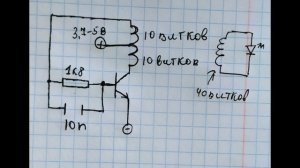 3,7-5В
10 витков
10 витков
1к8
10п
40 витков